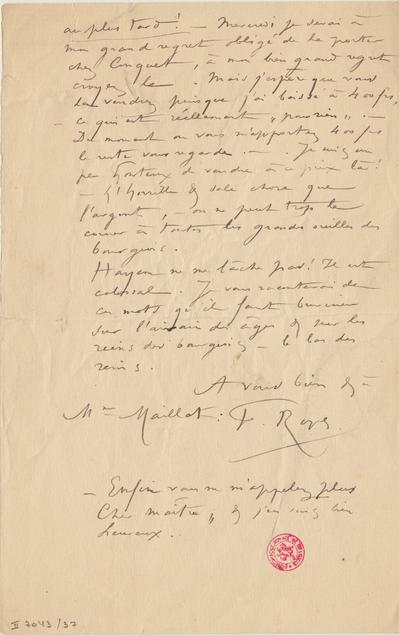 au plus tard! — Mercredi je serai à
mon grand regret obligé de le porter
chez Cinquet, à mon bien grand regret
croyez le. Mais j'espère que vous
le vendrez puisque j'ai baissé à 400 frs,
ce qui est réellement "pour rien". —
Du moment où vous m'apportez 400 frs
le reste vous regarde. — . Je suis un
peu honteux de vendre à ce prix là!
— L'horrible & sale chose que
l'argent, — on ne peut trop le
à toutes les grandes oreilles des
bourgeois.
Hayem ne me lâche pas! Il est
colossal. Je vous raconterai de
ces mots qu'il faut buriner
sur l'airain des âges & sur les
reins des bourgeois — le bas des
reins.
A vous bien &—
Mme Maillot : F. Rops.
— Enfin vous ne m'appelez plus
Cher maître", & j'en suis bien
heureux..
II 7043/37